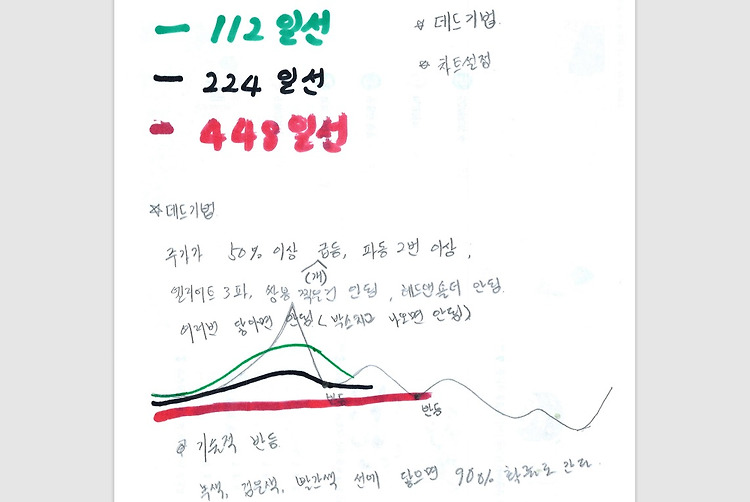 112 일선
224 일선
448 일선
※ 데드기법
※ 차트설정
※ 데드기법
주가가 50% 이상 급등, 파동 2번 이상,
(개)
엘리어트 3파, 쌍봉 찍은건 안됨, 헤드앤숄더 안됨.
여러번 닿아면 안됨 (박스치고 나오면 안됨)
반등
반등
※ 기술적 반등
녹색, 검은색, 빨간색 선에 닿으면 90% 확률로 간다.